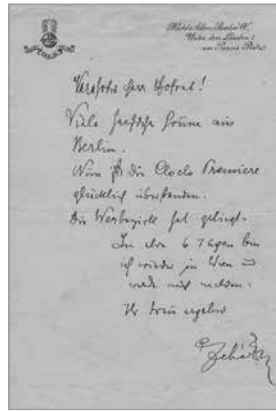 Hôtel Adlon, Berlin W.
Unter den Linden 1
am Pariser Platz
Verehrter Herr Hofrat!
Viele herzliche Grüsse aus
Berlin.
Nun ist die Cloclo Premiere
glücklich überstanden.
Die Werbezirk hat gefiegt.
In etwa 6 Tagen bin
ich wieder in Wien u
werde mich melden.
Ihr treu ergebener
Lehár